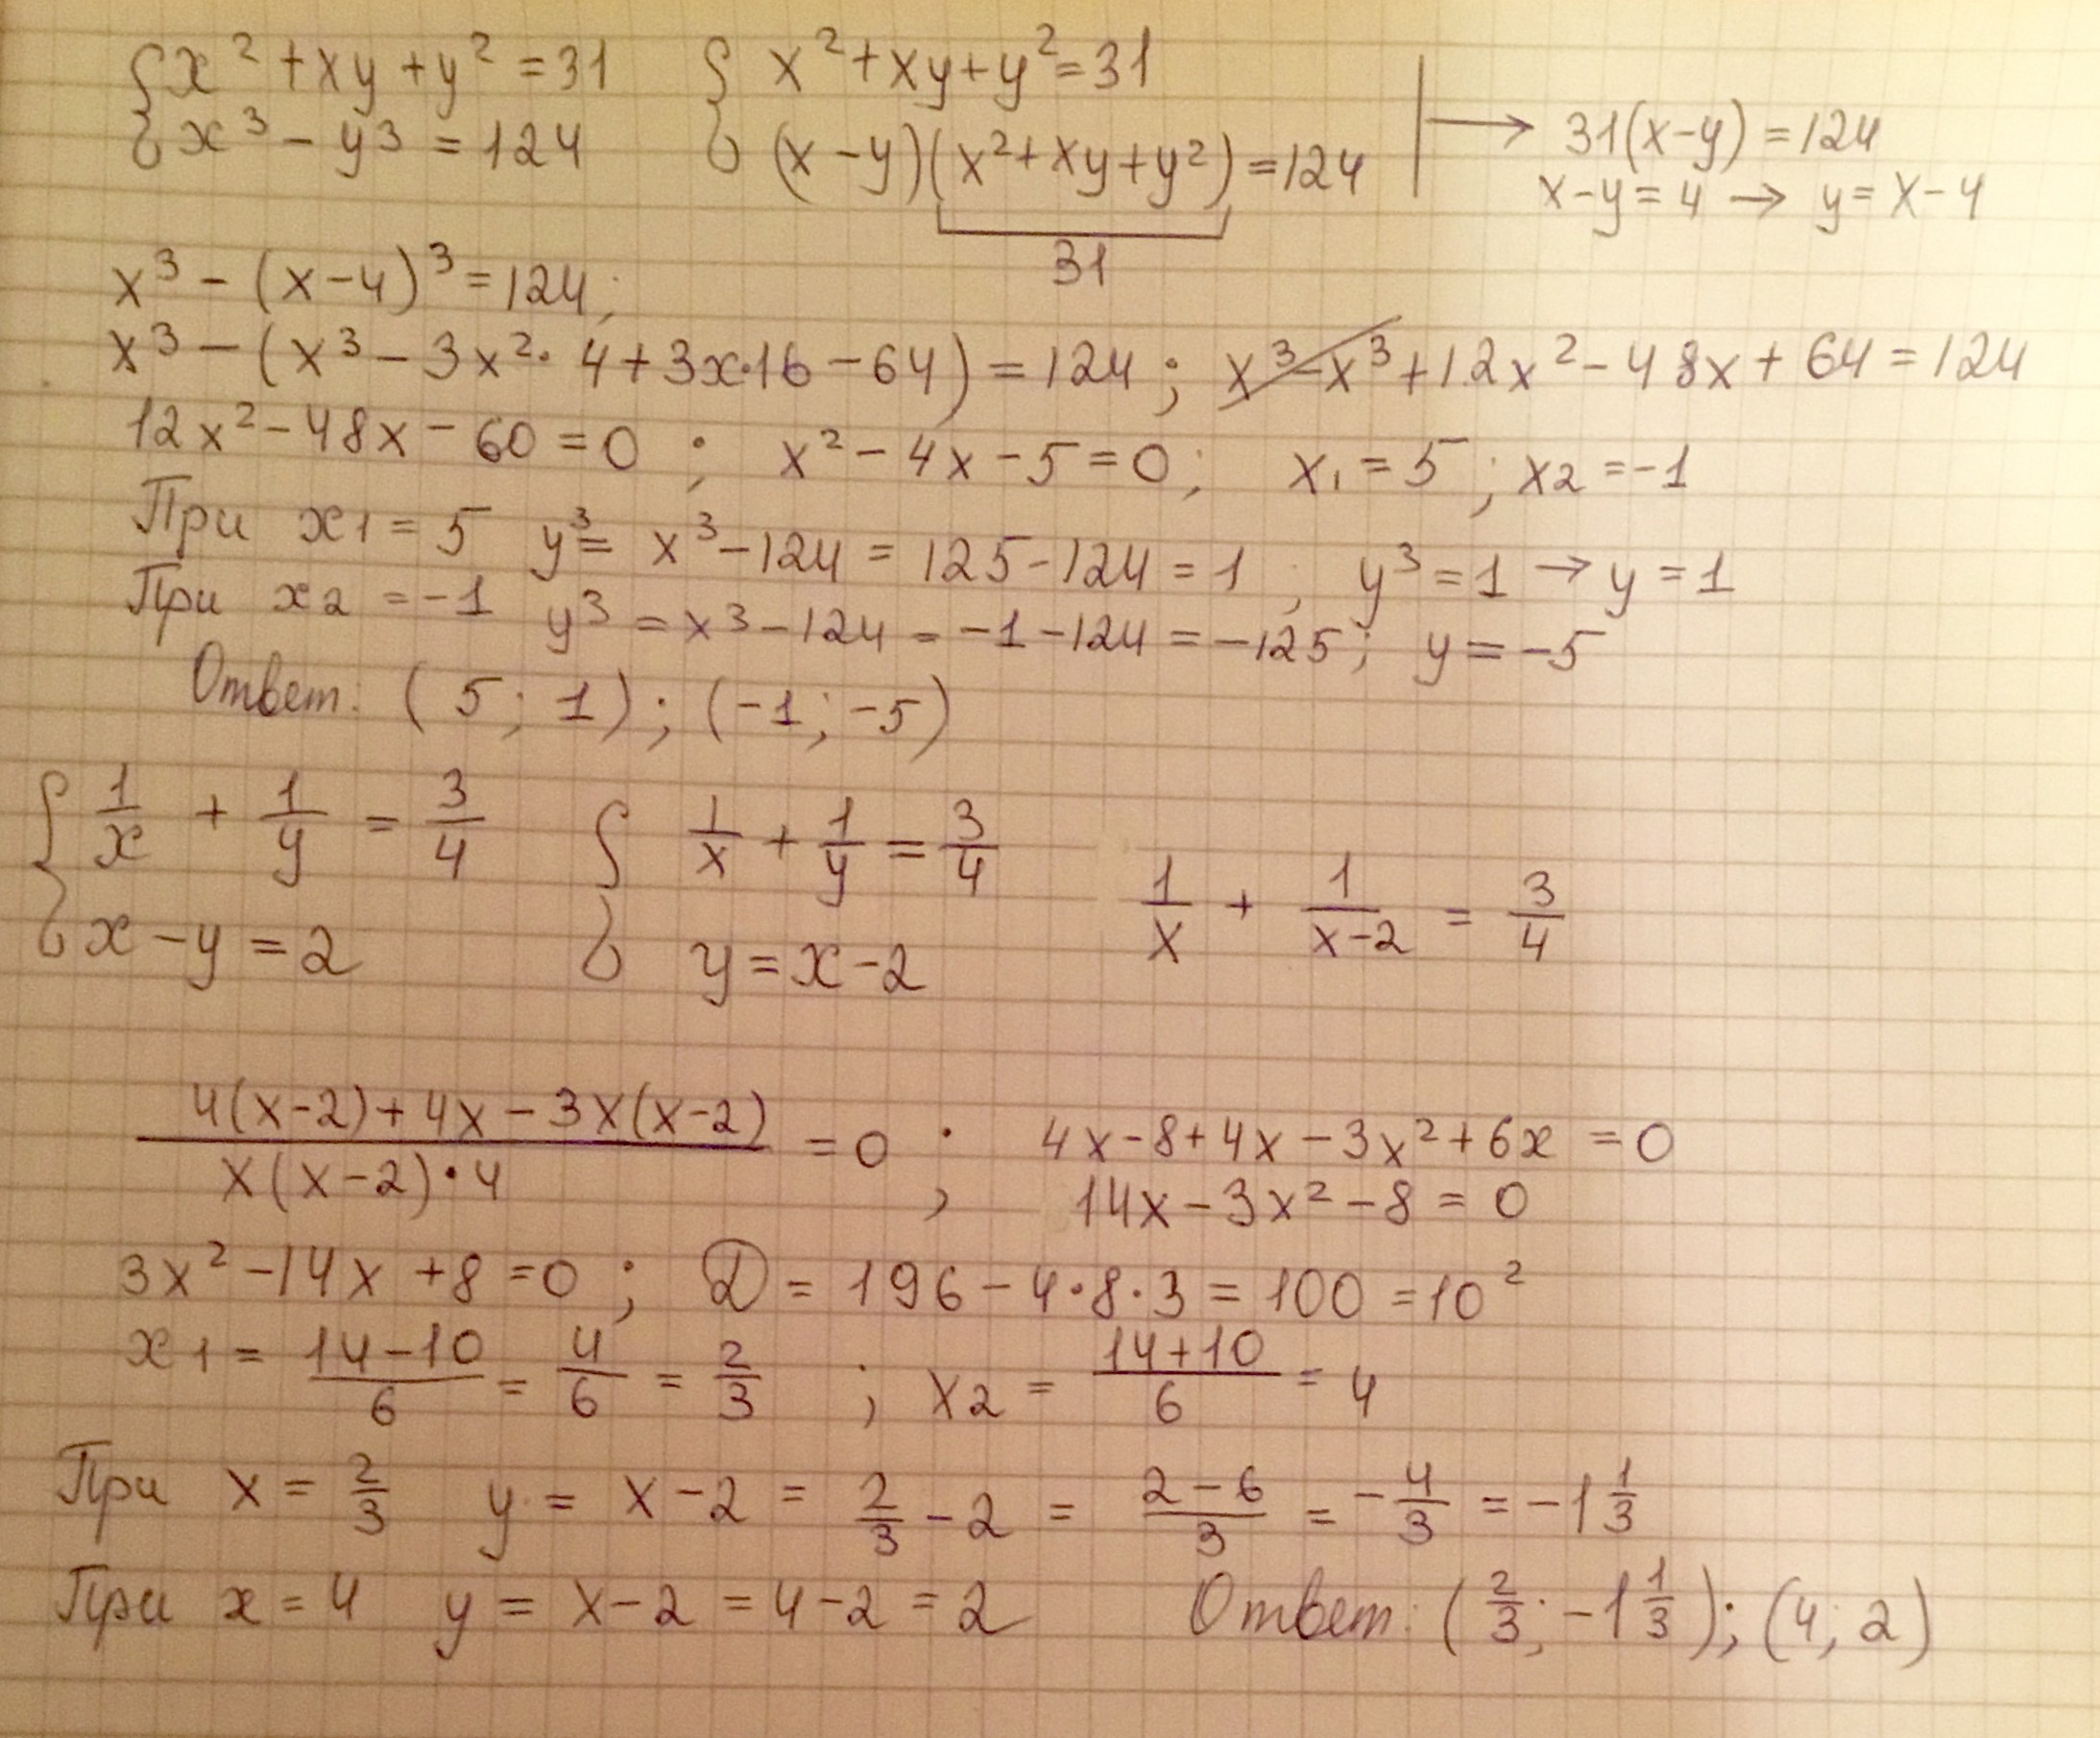 {x² + xy + y² = 31 {x² + xy + y² = 31
{x³ - y³ = 124 {(x - y)(x² + xy + y²) = 124 | → 31(x-y) = 124
31 x-y = 4 → y = x-4
x³ - (x-4)³ = 124;
x³ - (x³ - 3x²·4 + 3x·16 - 64) = 124; x³ - x³ + 12x² - 48x + 64 = 124
12x² - 48x - 60 = 0; x² - 4x - 5 = 0; x₁ = 5; x₂ = -1
При x₁ = 5 y³ = x³ - 124 = 125 - 124 = 1; y³ = 1 → y = 1
При x₂ = -1 y³ = x³ - 124 = -1 - 124 = -125; y = -5
Ответ: (5; 1); (-1; -5)
{1/x + 1/y = 3/4 {1/x + 1/y = 3/4 1/x + 1/(x-2) = 3/4
{x - y = 2 {y = x - 2
(4(x-2) + 4x - 3x(x-2))/(x(x-2)·4) = 0; 4x - 8 + 4x - 3x² + 6x = 0
14x - 3x² - 8 = 0
3x² - 14x + 8 = 0; D = 196 - 4·8·3 = 100 = 10²
x₁ = (14-10)/6 = 4/6 = 2/3; x₂ = (14+10)/6 = 4
При x = 2/3 y = x - 2 = 2/3 - 2 = (2-6)/3 = -4/3 = -1 1/3
При x = 4 y = x - 2 = 4 - 2 = 2 Ответ: (2/3; -1 1/3); (4; 2)